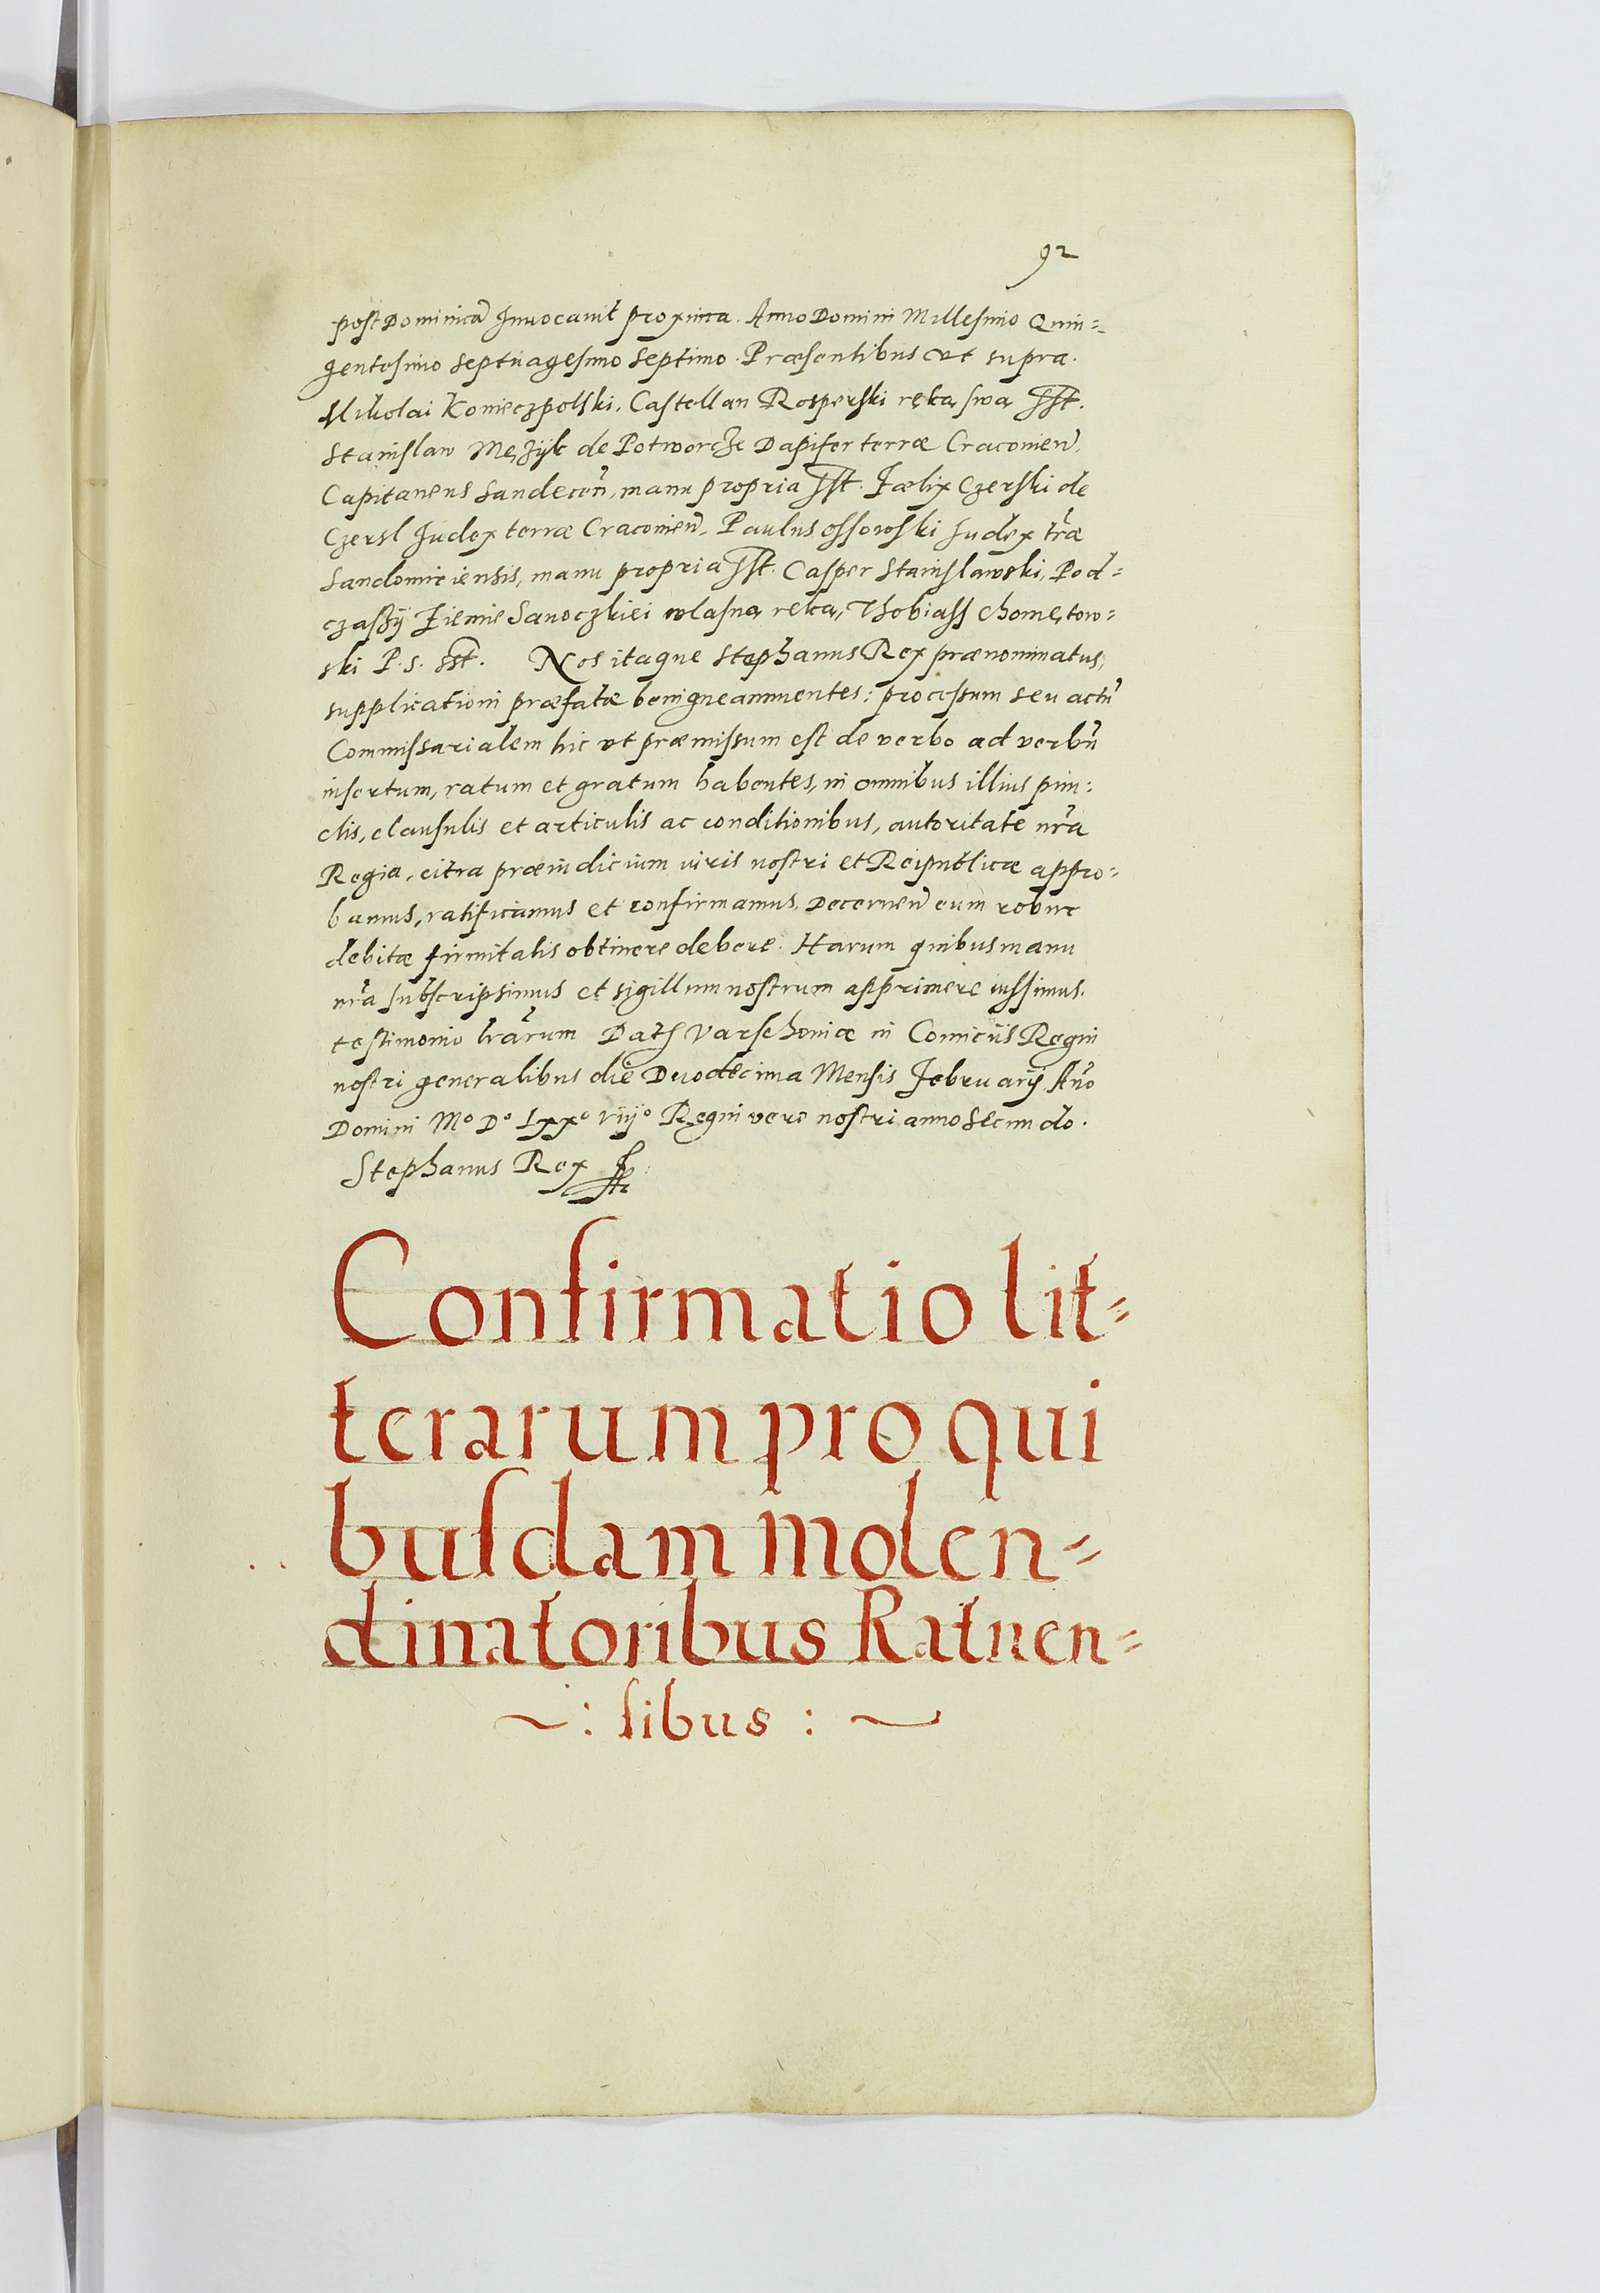 92
post Dominicã Invocavit proxima. Anno Domini Millesimo Quin=
gentesimo septuagesimo septimo. Præsentibus ut supra.
Mikolai Konieczpolski. Castellan Rosperski ręką swą sst.
Stanislaw Mężyk de Potworcze Dapifer terræ Cracovien̄.
Capitaneus Sandecen̄, manu propria sst. Fœlix Czerski de
Czersl Iudex terræ Cracovien̄. Paulus Ossowski Iudex tr̄æ
Sandomiriensis, manu propria sst. Casper Stanislawski, Pod=
czaszÿ Ziemie Sanoczkiei wlasną ręką, Thobiass Chomętow=
ski P. S. sst. Nos itaque Stephanus Rex prænominatus,
supplicationi præfatæ benigne annuentes: processum seu actū
Commissarialem hic ut præmissum est de verbo ad verbū
insertum, ratum et gratum habentes, in omnibus illius pun=
ctis, clausulis et articulis ac conditionibus, autoritate nr̄a
Regia, citra præiudicium iuris nostri et Reipublicæ appro=
bamus, ratificamus et confirmamus. Decernen̄ eum robur
debitæ firmitatis obtinere debere. Harum quibus manu
nr̄a subscripsimus et sigillum nostrum apprimere iussimus.
testimonio lr̄arum Datʒ Varschoviæ in Comicijs Regni
nostri generalibus die Duodecima Mensis Februarij Año
Domini Mº Dº Lxxº viijº Regni vero nostri anno secundo.
Stephanus Rex sst
Confirmatio lit=
terarum pro qui
busdam molen=
dinatoribus Ratnen=
~: sibus : ~